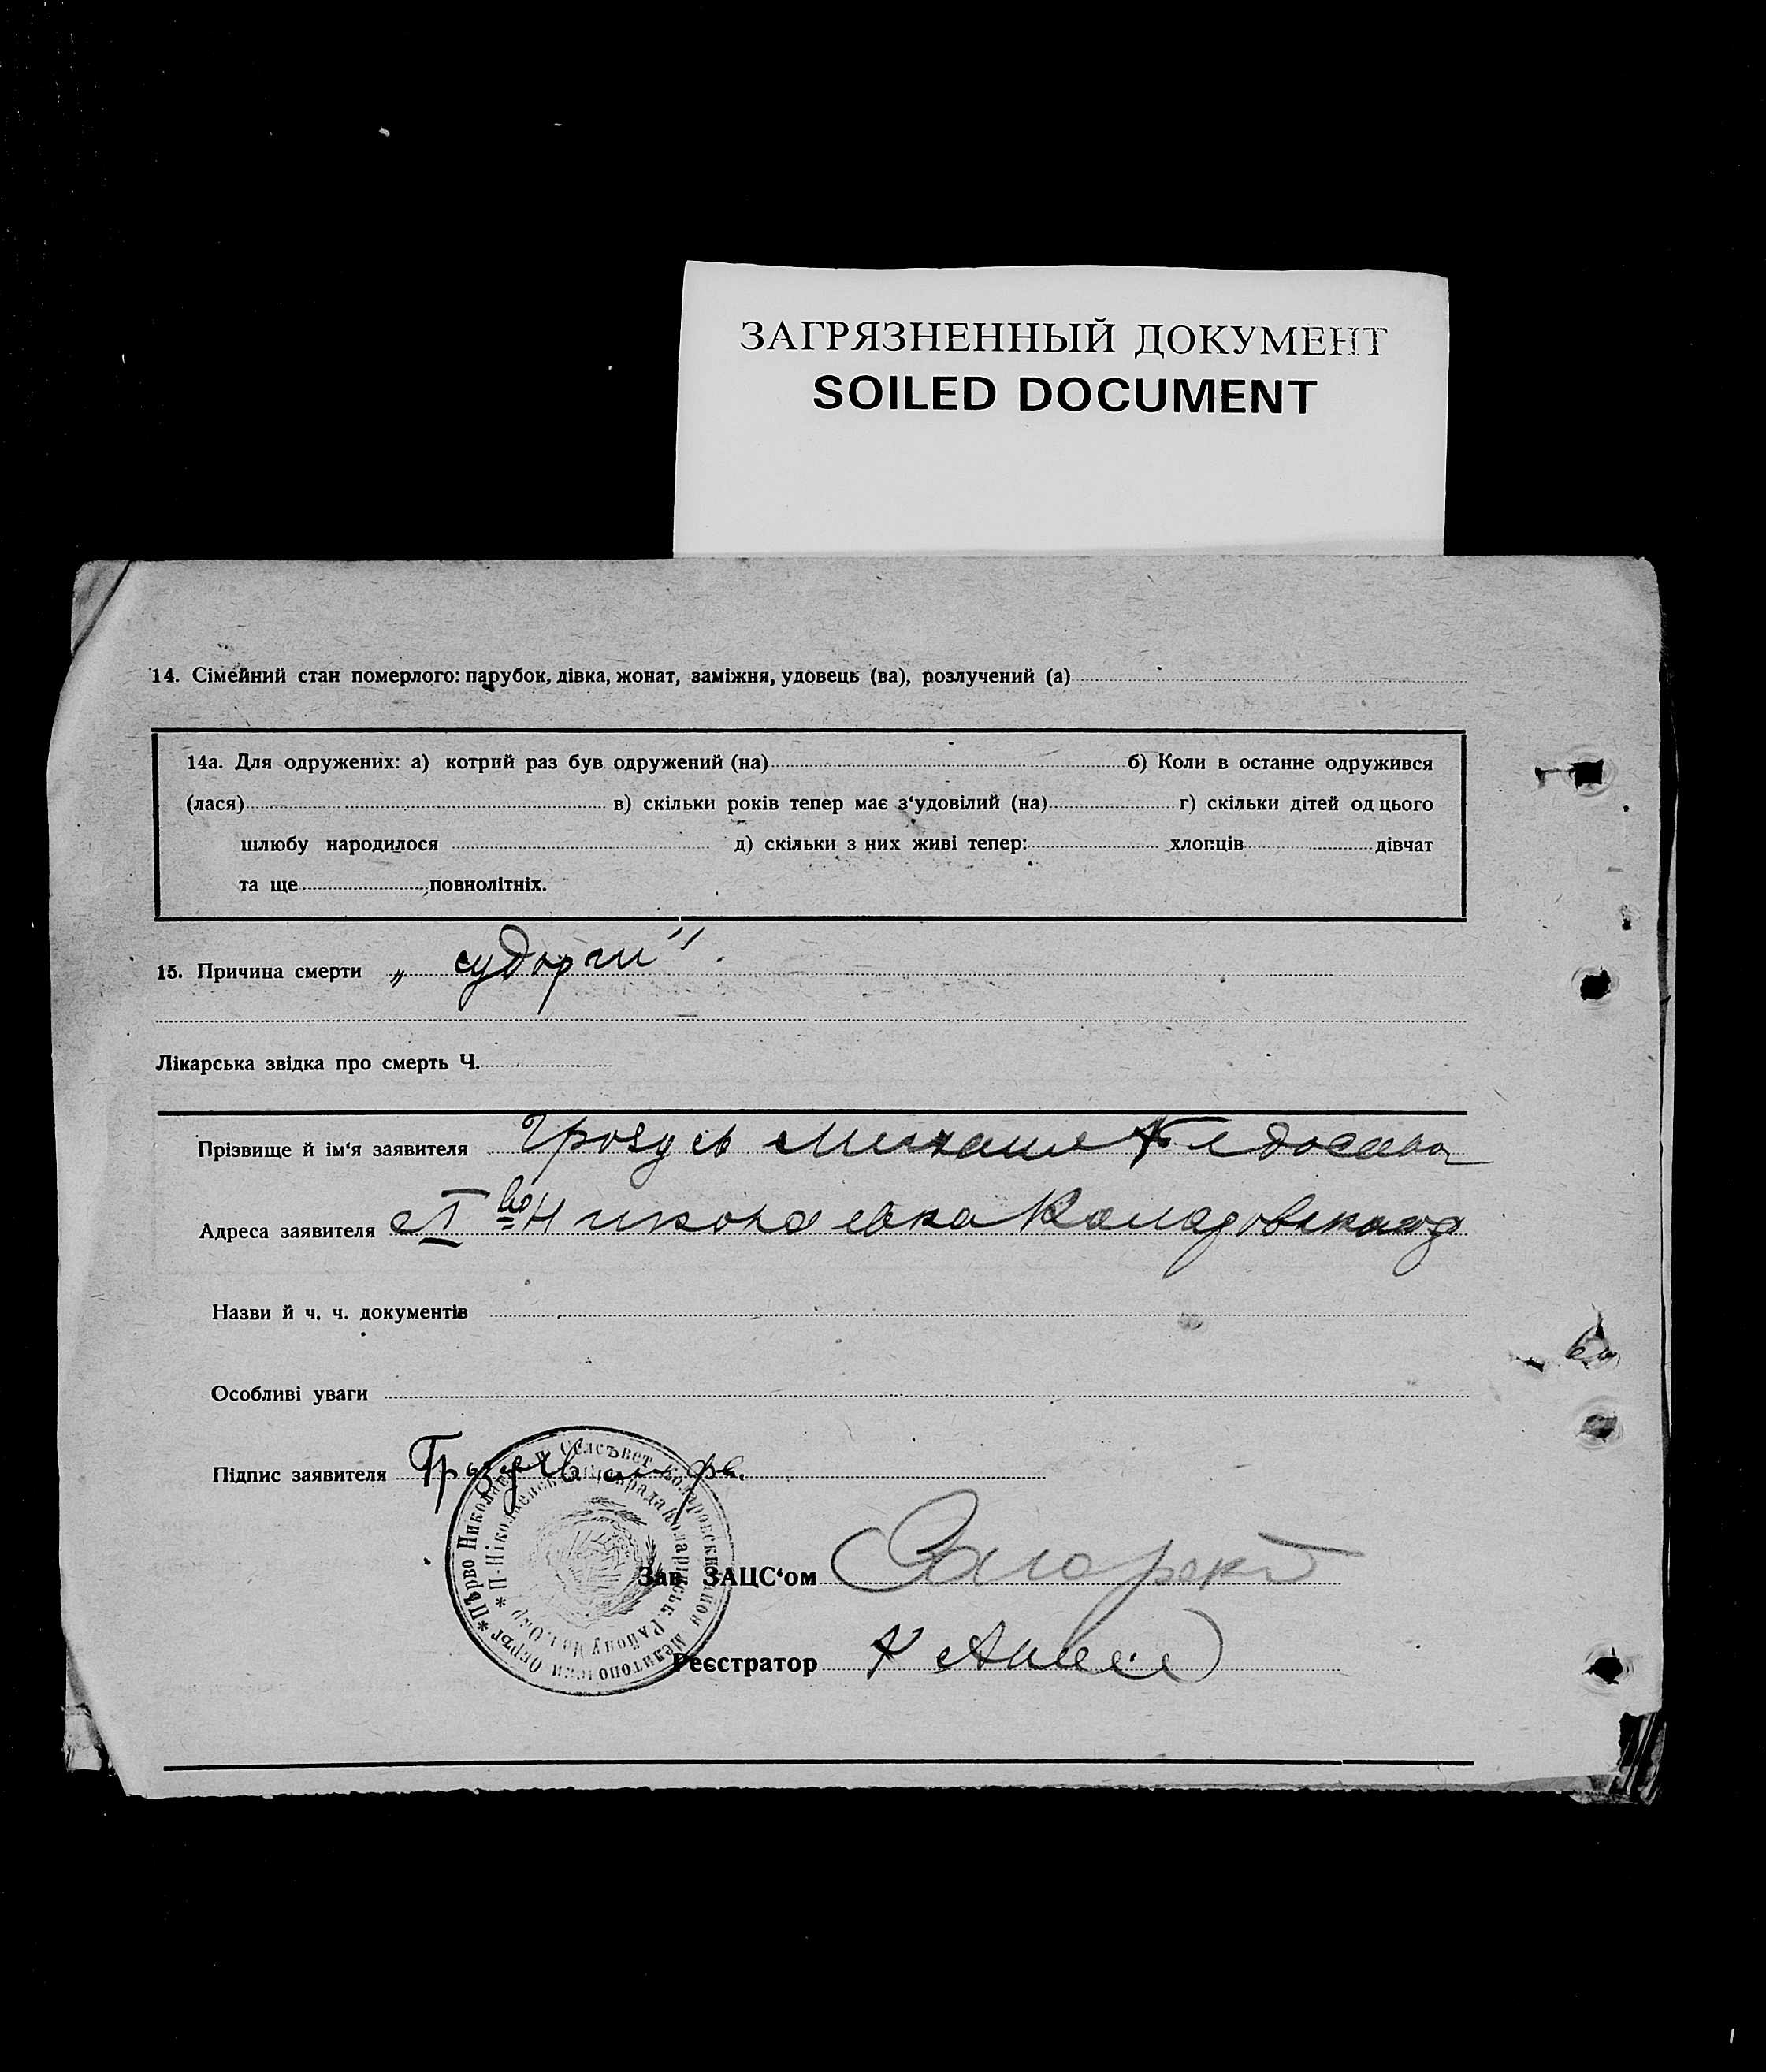 ЗАГРЯЗНЕННЫЙ ДОКУМЕНТ
SOILED DOCUMENT
14. Сімейний стан померлого: парубок, дівка, жонат, заміжня, удовець (ва), розлучений (а)
14а. Для одружених: а) котрий раз був одружений (на) б) Коли в останне одружився
(лася) в) скільки років тепер має з‘удовілий (на) г) скільки дітей од цього
шлюбу народилося д) скільки з них живі тепер: хлопців дівчат
та ще повнолітніх.
15. Причина смерти „ судорги"
Лікарська звідка про смерть Ч.
Прізвище й ім‘я заявителя Грозуев Михаил
Адреса заявителя с I во Николаевка
Назви й ч. ч. документів
Особливі уваги
Підпис заявителя
Зав. ЗАЦС‘ом
Реєстратор